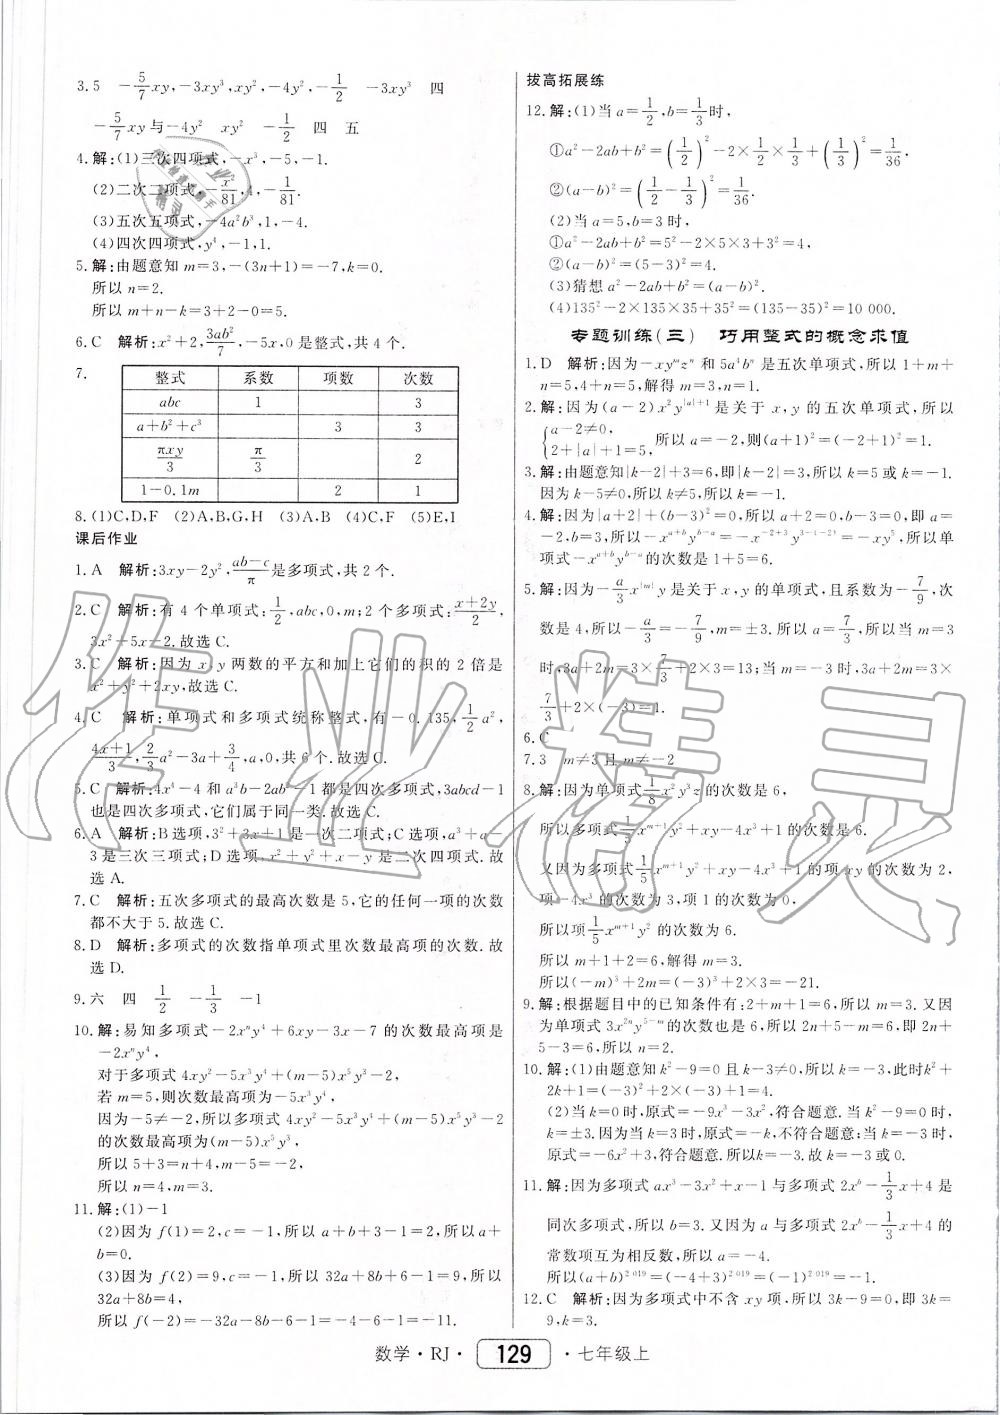 3.5　-5/7xy,-3xy³,xy²,-4y²,-1/2　-3xy³　四
-5/7xy与-4y²　xy²　-1/2　四　五
4.解:(1)三次四项式,-x³,-5,-1.
(2)二次二项式,-x²/81,4,-1/81.
(3)五次五项式,-4a²b³,1,-4.
(4)四次四项式,y⁴,-1,1.
5.解:由题意知m=3,-(3n+1)=-7,k=0.
所以n=2.
所以m+n-k=3+2-0=5.
6.C　解析:x²+2,3ab²/7,-5x,0是整式,共4个.
7.
整式　系数　项数　次数
abc　1　　3
a+b²+c³　　3　3
πxy/3　π/3　　2
1-0.1m　　2　1
8.(1)C,D,F　(2)A,B,G,H　(3)A,B　(4)C,F　(5)E,I
课后作业
1.A　解析:3xy-2y²,(ab-c)/π是多项式,共2个.
2.C　解析:有4个单项式:1/2,abc,0,m;2个多项式:(x+2y)/2,
3x²-5x-2.故选C.
3.C　解析:因为x,y两数的平方和加上它们的积的2倍是
x²+y²+2xy,故选C.
4.C　解析:单项式和多项式统称整式,有-0.135,1/2a²,
(4x+1)/3,2/3a²-3a+3/4,a,0,共6个.故选C.
5.C　解析:4x⁴-4和a³b-2ab²-1都是四次多项式,3abcd-1
也是四次多项式,它们属于同一类.故选C.
6.A　解析:B选项,3²+3x+1是一次二项式;C选项,a³+a-
3是三次三项式;D选项,x²+y²+x-y是二次四项式.故
选A.
7.C　解析:五次多项式的最高次数是5,它的任何一项的次数
都不大于5.故选C.
8.D　解析:多项式的次数指单项式里次数最高项的次数.故
选D.
9.六　四　1/2　-1/3　-1
10.解:易知多项式-2xⁿy⁴+6xy-3x-7的次数最高项是
-2xⁿy⁴,
对于多项式4xy²-5x³y⁴+(m-5)x⁵y³-2,
若m=5,则次数最高项为-5x³y⁴,
因为-5≠-2,所以多项式4xy²-5x³y⁴+(m-5)x⁵y³-2
的次数最高项为(m-5)x⁵y³,
所以5+3=n+4,m-5=-2,
所以n=4,m=3.
11.解:(1)-1
(2)因为f(1)=2,c=-1,所以a+b+3-1=2,所以a+
b=0.
(3)因为f(2)=9,c=-1,所以32a+8b+6-1=9,所以
32a+8b=4,
所以f(-2)=-32a-8b-6-1=-4-6-1=-11.
拔高拓展练
12.解:(1)当a=1/2,b=1/3时,
①a²-2ab+b²=(1/2)²-2×1/2×1/3+(1/3)²=1/36.
②(a-b)²=(1/2-1/3)²=1/36.
(2)当a=5,b=3时,
①a²-2ab+b²=5²-2×5×3+3²=4,
②(a-b)²=(5-3)²=4.
(3)猜想a²-2ab+b²=(a-b)².
(4)135²-2×135×35+35²=(135-35)²=10 000.
专题训练(三)　巧用整式的概念求值
1.D　解析:因为-xyᵐzⁿ和5a⁴bⁿ是五次单项式,所以1+m+
n=5,4+n=5,解得m=3,n=1.
2.解:因为(a-2)x²y^(|a|+1)是关于x,y的五次单项式,所以
{a-2≠0, 2+|a|+1=5, 所以a=-2,则(a+1)²=(-2+1)²=1.
3.解:由题意知|k-2|+3=6,即|k-2|=3,所以k=5或k=-1.
因为k-5≠0,所以k≠5,所以k=-1.
4.解:因为|a+2|+(b-3)²=0,所以a+2=0,b-3=0,即a=
-2,b=3,所以-x^(a+b)y^(b-a)=-x^(-2+3)y^(3-(-2))=-xy⁵,所以单
项式-x^(a+b)y^(b-a)的次数是1+5=6.
5.解:因为-a/3x^|m|y是关于x,y的单项式,且系数为-7/9,次
数是4,所以-a/3=-7/9,m=±3.所以a=7/3,所以当m=3
时,3a+2m=3×7/3+2×3=13;当m=-3时,3a+2m=3×
7/3+2×(-3)=1.
6.C
7.3　m≠3且m≠-2
8.解:因为单项式1/8x²y³z的次数是6,
所以多项式1/5x^(m+1)y²+xy-4x³+1的次数是6.
又因为多项式1/5x^(m+1)y²+xy-4x³+1的项xy的次数为2,
项-4x³的次数为3,项1的次数为0,
所以项1/5x^(m+1)y²的次数为6.
所以m+1+2=6,解得m=3.
所以(-m)³+2m=(-3)³+2×3=-21.
9.解:根据题目中的已知条件有:2+m+1=6,所以m=3.又因
为单项式3x²ⁿy^(5-m)的次数也是6,所以2n+5-m=6,即2n+
5-3=6,所以n=2.
10.解:(1)由题意知k²-9=0且k-3≠0,所以k=-3,此时k²+
2k+1=(-3)²+2×(-3)+1=4.
(2)当k=0时,原式=-9x³-3x²,符合题意.当k²-9=0时,
k=±3.因为当k=3时,原式=-k,不符合题意;当k=-3时,
原式=-6x²+3,符合题意.所以k=-3.故k=-3或0.
11.解:因为多项式ax³-3x²+x-1与多项式2xᵇ-1/3x+4是
同次多项式,所以b=3.又因为a与多项式2xᵇ-1/3x+4的
常数项互为相反数,所以a=-4.
所以(a+b)²⁰¹⁹=(-4+3)²⁰¹⁹=(-1)²⁰¹⁹=-1.
12.C　解析:因为多项式中不含xy项,所以3k-9=0,即3k=
9,k=3.
数学·RJ·　129　·七年级上
作业精灵